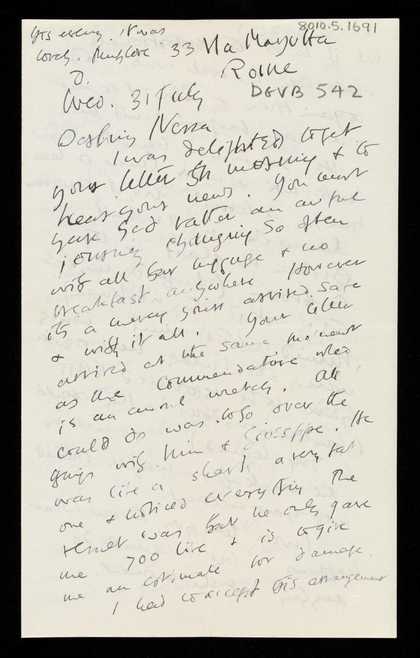 this evening. it was
lovely. Much love 33 Via Margutta
D. Rome
8010.5.1691
DGVB 542
Wed. 31 July
Darling Nessa
I was delighted to get
your letter this morning & to
hear your news. You must
have had rather an awful
journey changing so often
with all that luggage & no
breakfast anywhere However
its a mercy you've arrived safe
& with it all. Your letter
arrived at the same moment
as the Commendatore who
is an wretch. All
could do was to go over the
things with him & Giuseppe. He
was like a shark a very fat
one & noticed everything The
result was that he only gave
me 700 lire & is to give
me an estimate for damage.
I had to accept this arrangement